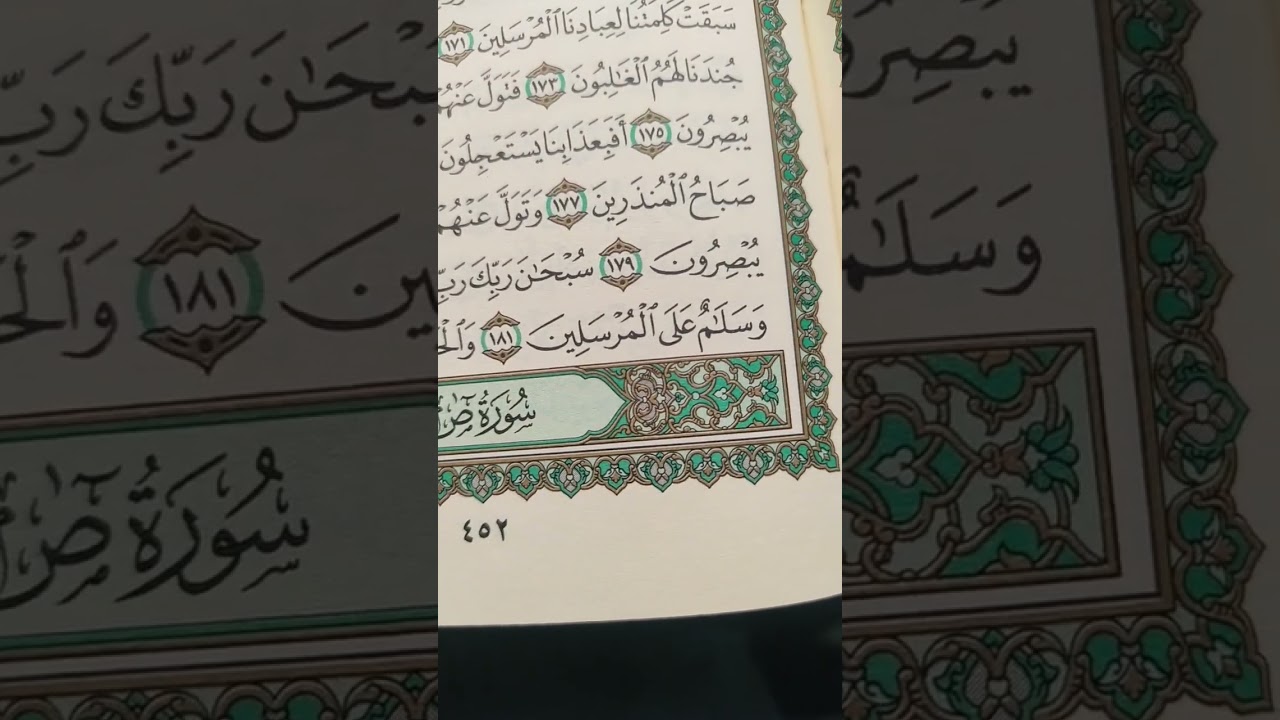 سَبَقَتْ كَلِمَتُنَا لِعِبَادِنَا ٱلْمُرْسَلِينَ ١٧١
جُندَنَا لَهُمُ ٱلْغَٰلِبُونَ ١٧٣ فَتَوَلَّ عَنْهُمْ
يُبْصِرُونَ ١٧٥ أَفَبِعَذَابِنَا يَسْتَعْجِلُونَ
صَبَاحُ ٱلْمُنذَرِينَ ١٧٧ وَتَوَلَّ عَنْهُمْ
يُبْصِرُونَ ١٧٩ سُبْحَٰنَ رَبِّكَ رَبِّ
وَسَلَٰمٌ عَلَى ٱلْمُرْسَلِينَ ١٨١
سُورَةُ صٓ
٤٥٢